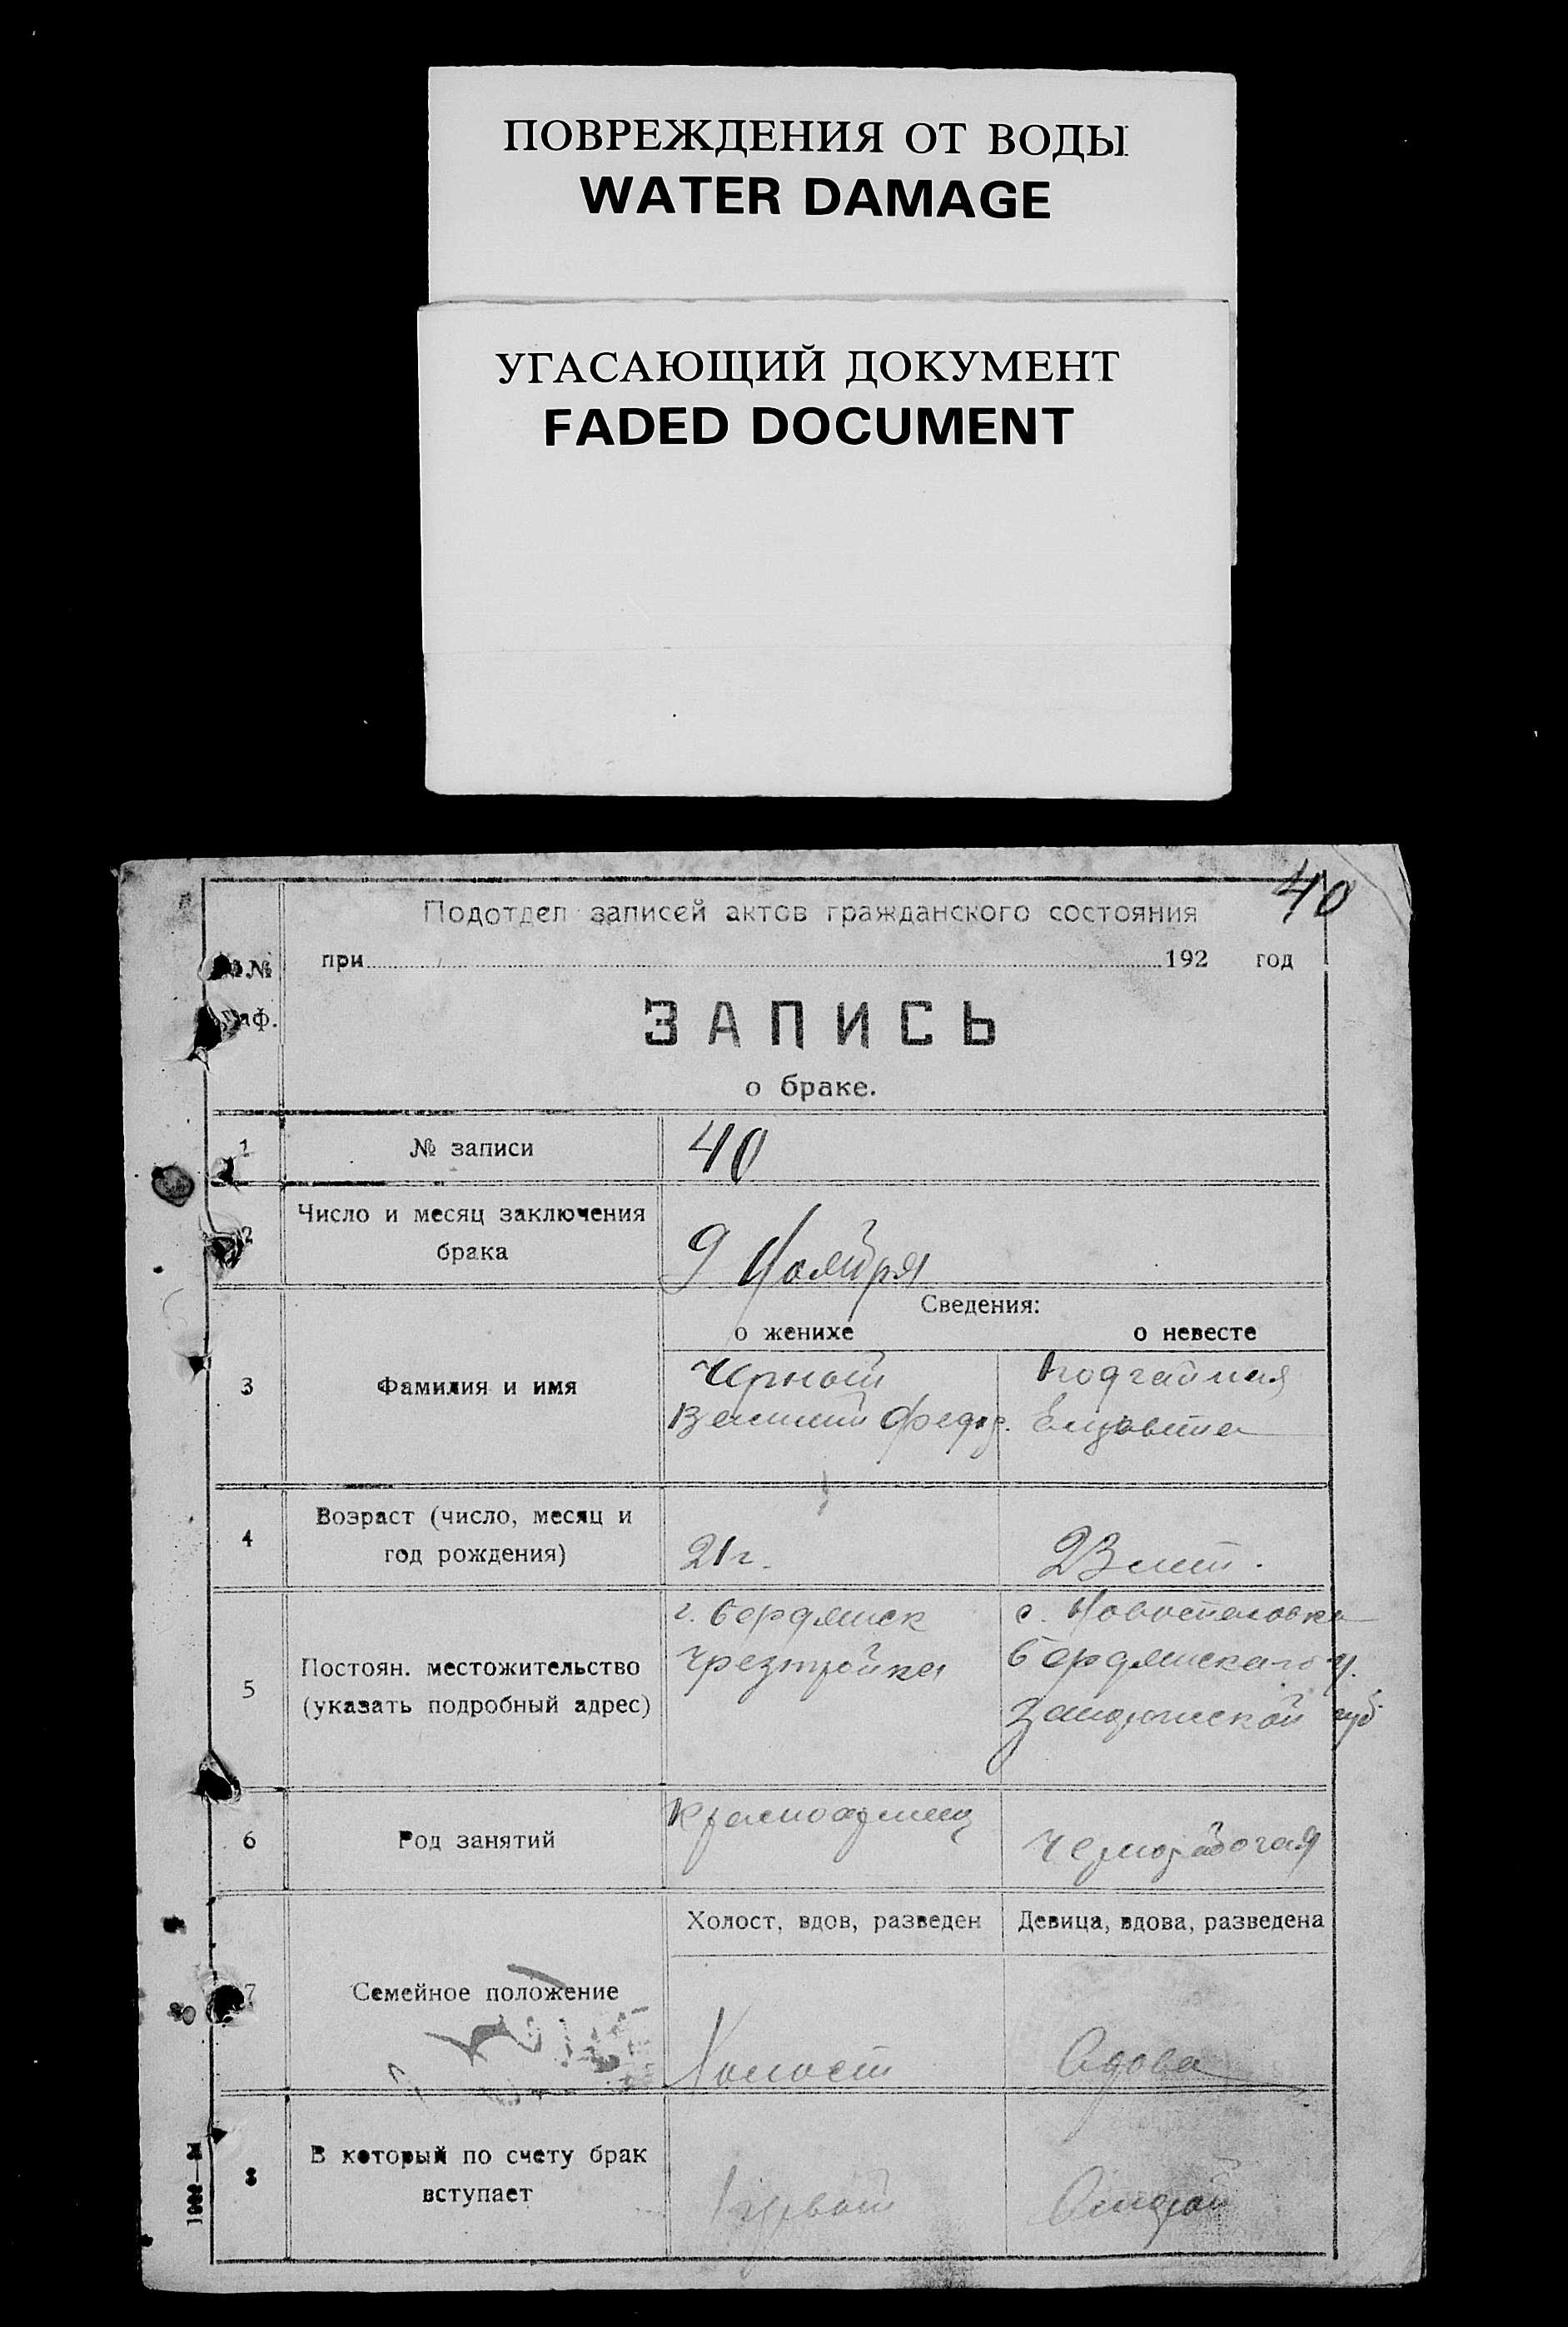 ПОВРЕЖДЕНИЯ ОТ ВОДЫ
WATER DAMAGE
УГАСАЮЩИЙ ДОКУМЕНТ
FADED DOCUMENT
40
Подотдел записей актов гражданского состояния
№ при 192 год
аф.
ЗАПИСЬ
о браке.
1 № записи 40
2 Число и месяц заключения
брака
9 Ноября
Сведения:
о женихе о невесте
3 Фамилия и имя
Черный Подгайная
Василий Федор. Елизавета
4 Возраст (число, месяц и
год рождения)
21 г. 23 лет.
5 Постоян. местожительство
(указать подробный адрес)
г. Бердянск с. Новоспасовка
Чрезтройка Бердянскаго у.
Запорожской губ.
6 Род занятий
Красноармеец Чернорабочая
Холост, вдов, разведен Девица, вдова, разведена
7 Семейное положение
Холост Вдова
8 В который по счету брак
вступает
Первый Второй